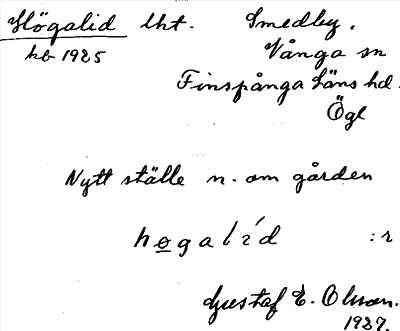 Högalid lht. Smedby.
hb 1925 Vånga sn
Finspånga läns hd.
Ögl
Nytt ställe n. om gården
høgalíd :r
Gustaf E. Olson.
1927.